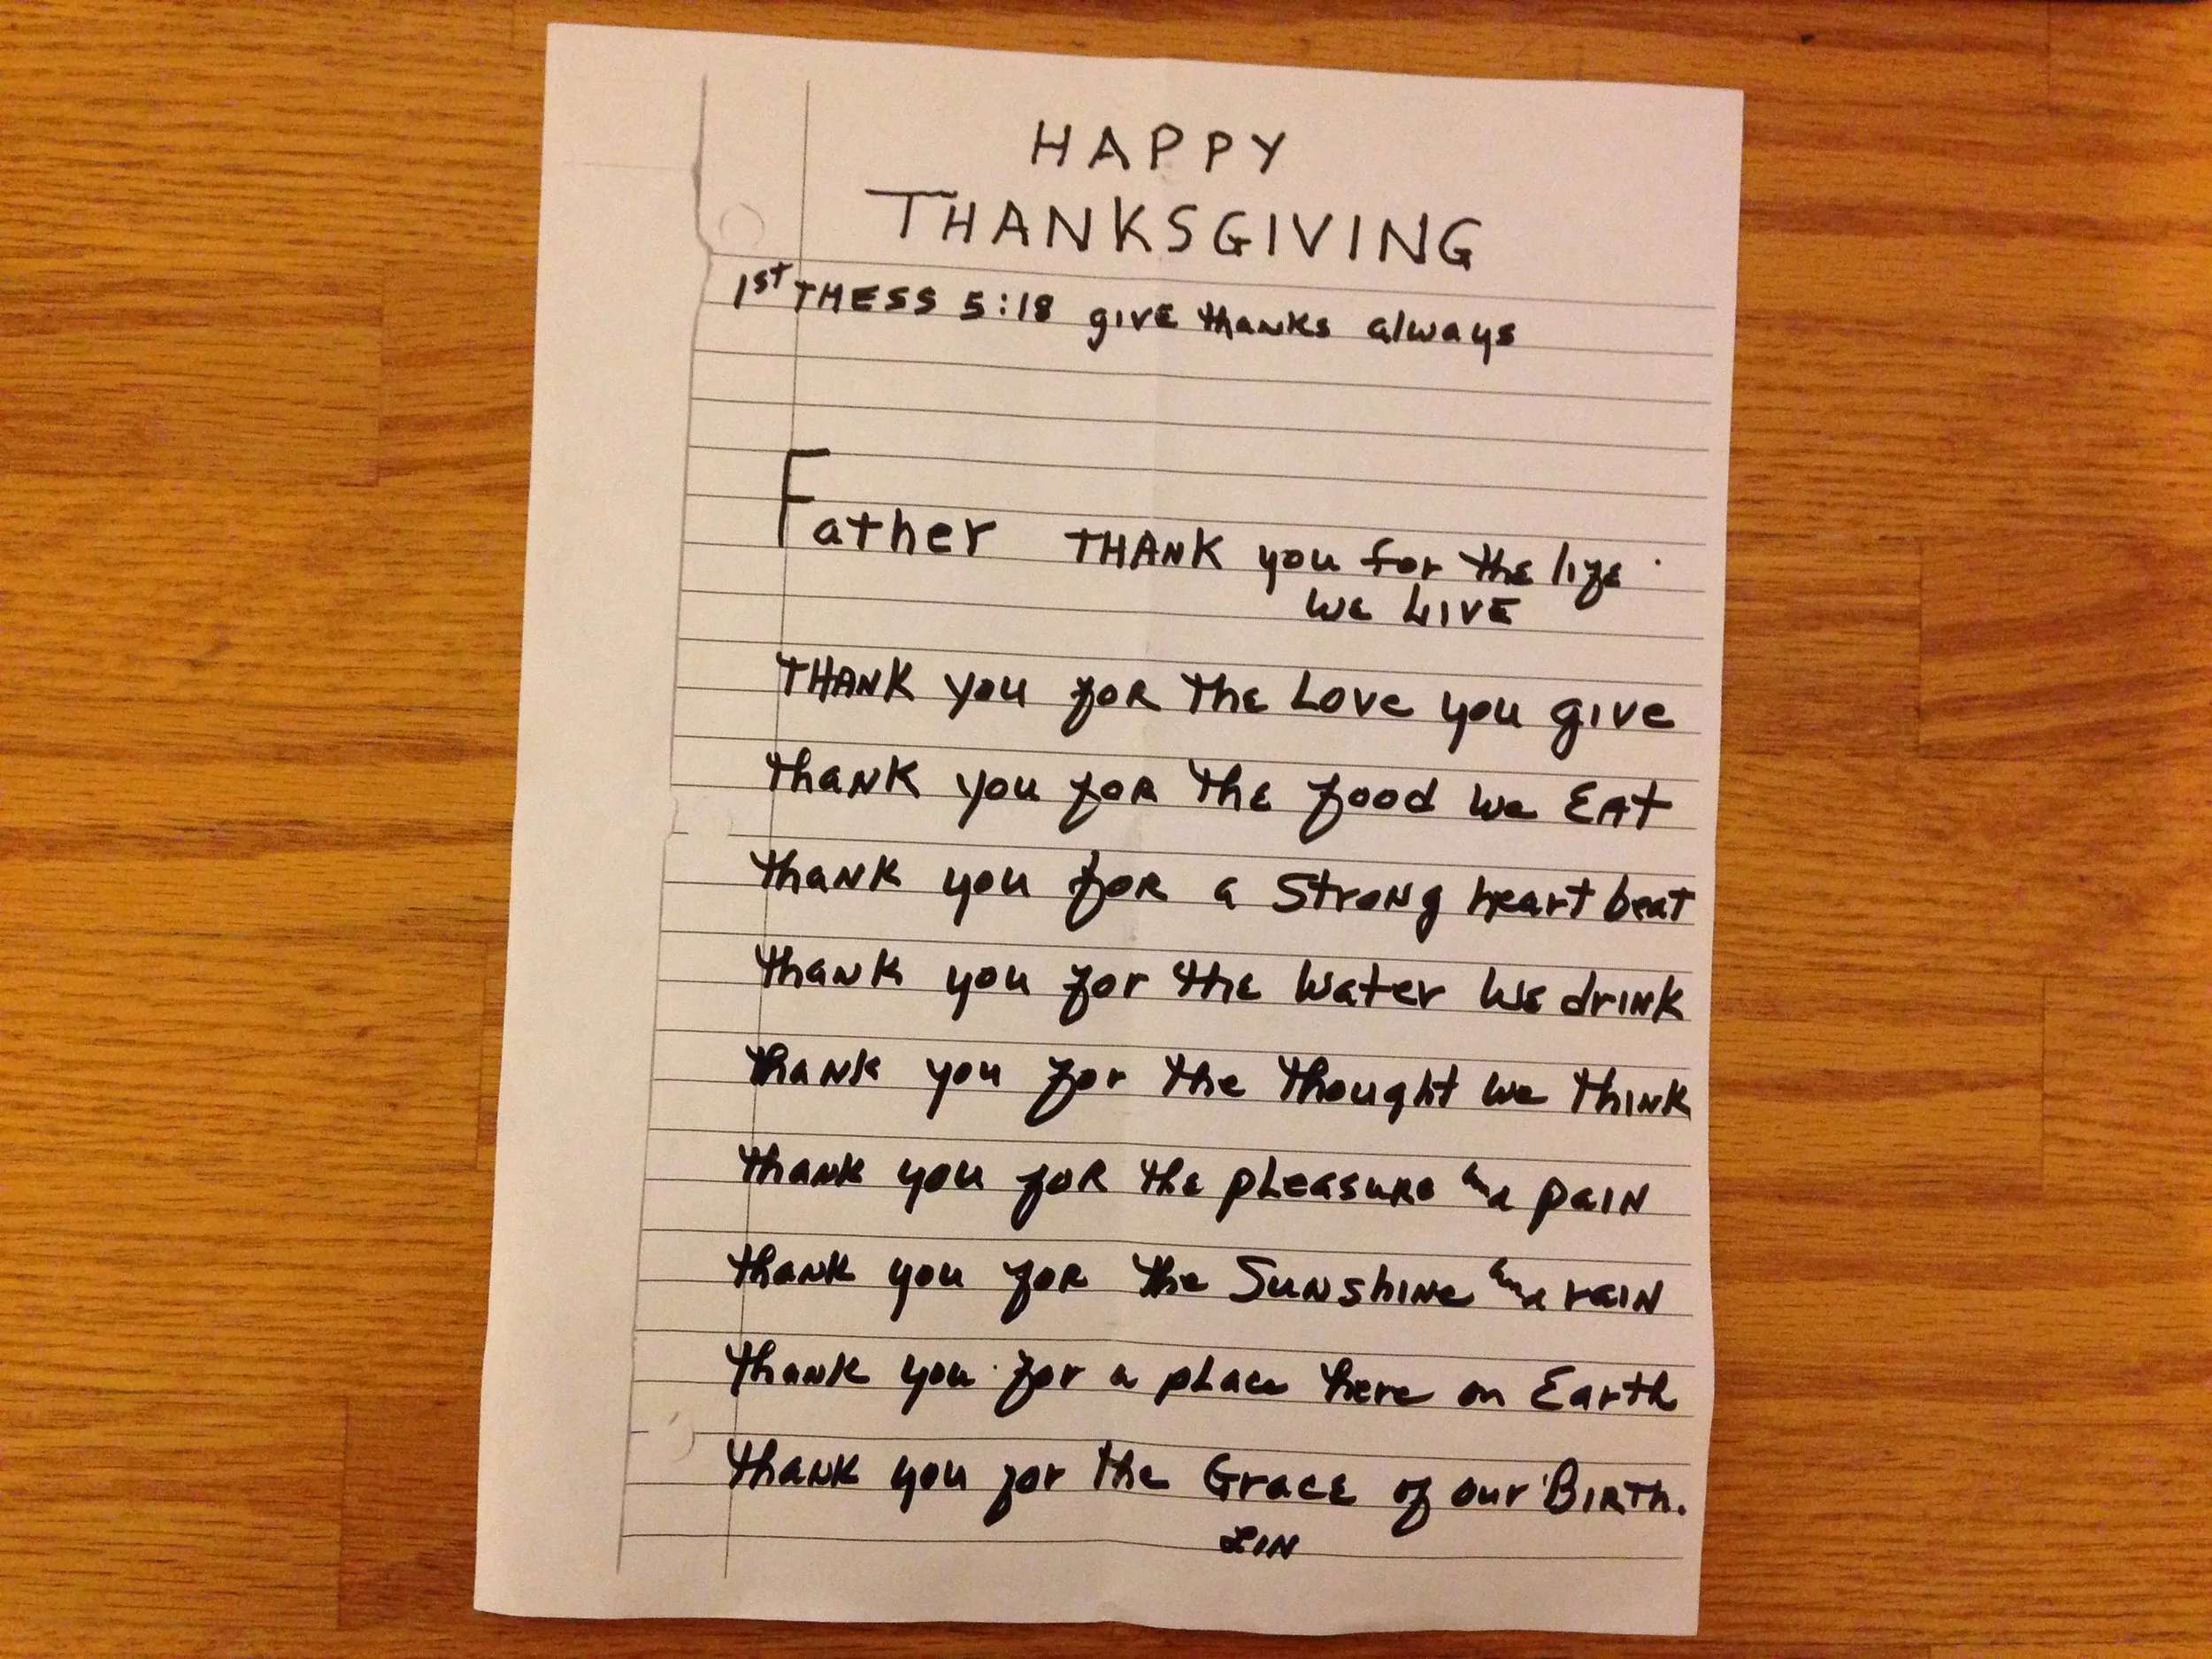 HAPPY
THANKSGIVING
1st THESS 5:18 give thanks always
Father THANK you for the life
we LIVE
THANK you for the Love you give
thank you for the food we EAt
thank you for a Strong heart beat
thank you for the water we drink
thank you for the thought we think
thank you for the pleasure and pain
thank you for the Sunshine and rain
thank you for a place here on Earth
thank you for the Grace of our Birth.
LIN